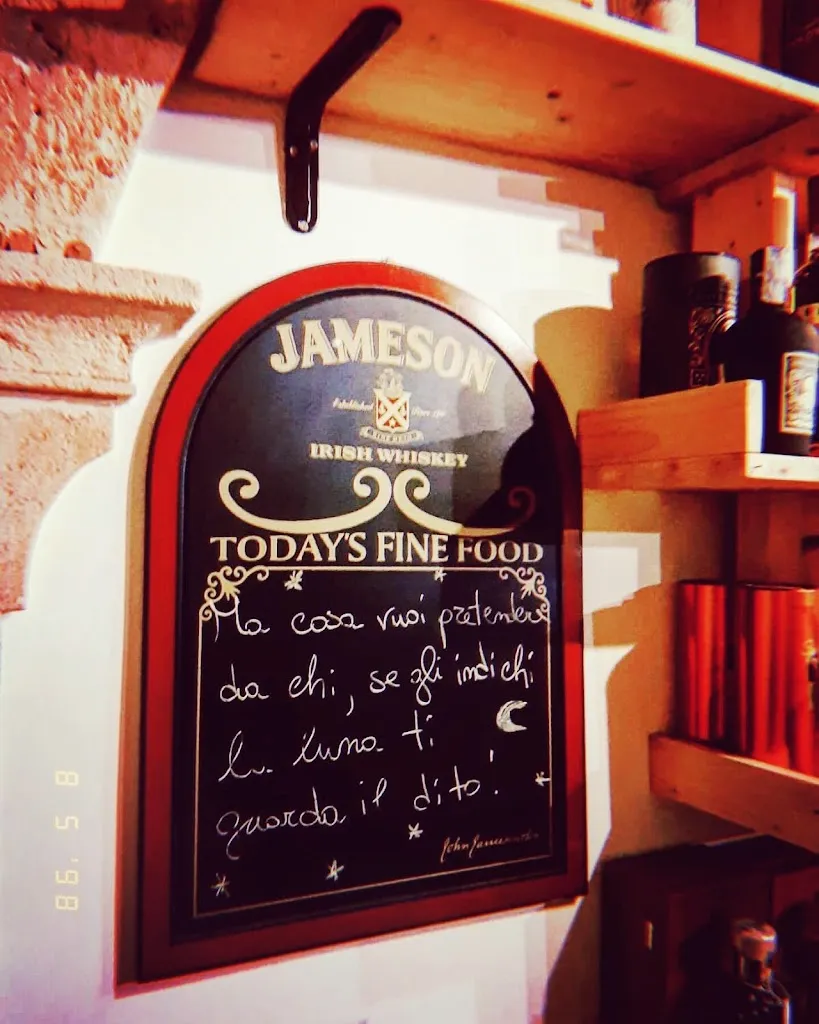 JAMESON
Established Since 1780
IRISH WHISKEY
TODAY'S FINE FOOD
Ma cosa vuoi pretendere
da chi, se gli indichi
la luna ti
guarda il dito!
John Jameson
86. 5 8